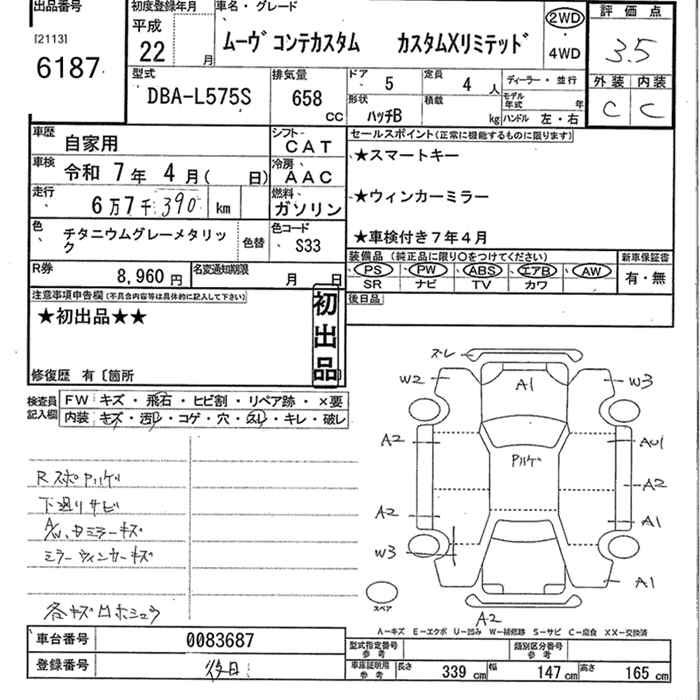 出品番号
[2113]
6187
初度登録年月
平成
22 月
車名・グレード
ムーヴ コンテカスタム カスタムXリミテッド
2WD
4WD
評価点
3.5
外装 内装
C C
型式
DBA-L575S
排気量
658 CC
ドア 5
定員 4 人
形状 ハッチB
積載 kg
ディーラー・並行
モデル年式 年
ハンドル 左・右
車歴 自家用
車検 令和 7 年 4 月( 日)
走行 6万7千390 km
色 チタニウムグレーメタリック
色替
シフト CAT
冷房 AAC
燃料 ガソリン
色コード S33
R券 8,960 円
名変通知期限 月 日
セールスポイント(正常に機能するものに限ります)
★スマートキー
★ウィンカーミラー
★車検付き7年4月
装備品 (純正品に限り○をつけてください)
PS PW ABS エアB AW
SR ナビ TV カワ
新車保証書
有・無
後日品
注意事項申告欄(不具合内容等は具体的に記入して下さい)
★初出品★★
初出品
修復歴 有〔箇所
検査員記入欄
FW キズ・飛石・ヒビ割・リペア跡・×要
内装 キズ・汚れ・コゲ・穴・スレ・キレ・破レ
RスポアルハゲL
下廻りサビ
A/W、ドミラーキズ
ミラーウィンカーキズ
各キズ凹ホシュウ
ズレ
W2
A1
W3
A2
アルゲ
AU1
A2
A2
A1
W3
A1
スペア
A2
A-キズ E-エクボ U-凹み W-補修跡 S-サビ C-腐食 XX-交換済
車台番号 0083687
登録番号 後日
型式指定番号 参考
類別区分番号 参考
車庫証明用 参考
長さ 339 cm 幅 147 cm 高さ 165 cm